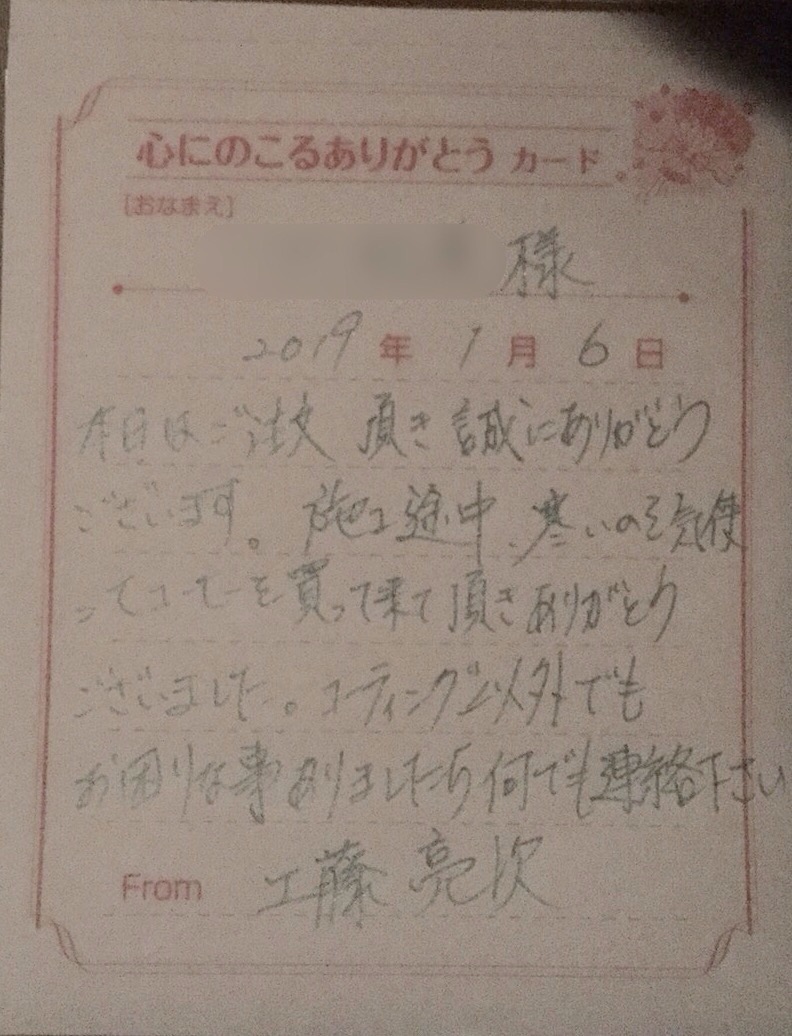 心にのこるありがとう カード
[おなまえ]
様
2019年 1月 6日
本日はご注文 頂き 誠にありがとう
ございます。施工途中、寒いのを気使
ってコーヒーを買って来て頂きありがとう
ございました。コーティング以外でも
お困りな事ありましたら何でも連絡下さい
From 工藤 亮次